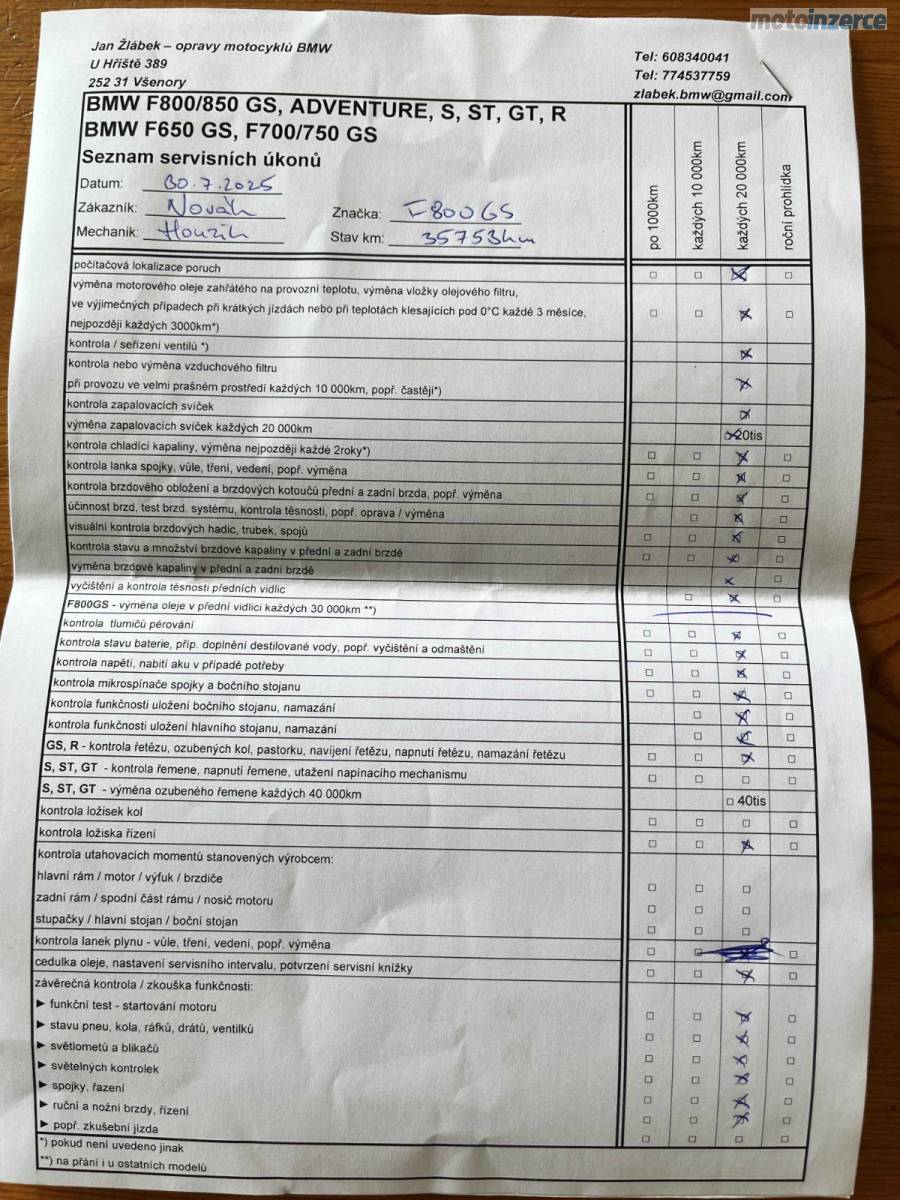 motoinzerce
Jan Žlábek – opravy motocyklů BMW
U Hřiště 389
252 31 Všenory
Tel: 608340041
Tel: 774537759
zlabek.bmw@gmail.com
BMW F800/850 GS, ADVENTURE, S, ST, GT, R
BMW F650 GS, F700/750 GS
Seznam servisních úkonů
Datum: 30.7.2025
Zákazník: Novák
Značka: F800GS
Mechanik:
Stav km: 35753km
po 1000km
každých 10 000km
každých 20 000km
roční prohlídka
počítačová lokalizace poruch
výměna motorového oleje zahřátého na provozní teplotu, výměna vložky olejového filtru,
ve výjimečných případech při krátkých jízdách nebo při teplotách klesajících pod 0°C každé 3 měsíce,
nejpozději každých 3000km*)
kontrola / seřízení ventilů *)
kontrola nebo výměna vzduchového filtru
při provozu ve velmi prašném prostředí každých 10 000km, popř. častěji*)
kontrola zapalovacích svíček
výměna zapalovacích svíček každých 20 000km
20tis
kontrola chladící kapaliny, výměna nejpozději každé 2roky*)
kontrola lanka spojky, vůle, tření, vedení, popř. výměna
kontrola brzdového obložení a brzdových kotoučů přední a zadní brzda, popř. výměna
účinnost brzd, test brzd. systému, kontrola těsnosti, popř. oprava / výměna
visuální kontrola brzdových hadic, trubek, spojů
kontrola stavu a množství brzdové kapaliny v přední a zadní brzdě
výměna brzdové kapaliny v přední a zadní brzdě
vyčištění a kontrola těsnosti předních vidlic
F800GS - výměna oleje v přední vidlici každých 30 000km **)
kontrola tlumičů pérování
kontrola stavu baterie, příp. doplnění destilované vody, popř. vyčištění a odmaštění
kontrola napětí, nabití aku v případě potřeby
kontrola mikrospínače spojky a bočního stojanu
kontrola funkčnosti uložení bočního stojanu, namazání
kontrola funkčnosti uložení hlavního stojanu, namazání
GS, R - kontrola řetězu, ozubených kol, pastorku, navíjení řetězu, napnutí řetězu, namazání řetězu
S, ST, GT - kontrola řemene, napnutí řemene, utažení napínacího mechanismu
S, ST, GT - výměna ozubeného řemene každých 40 000km
40tis
kontrola ložisek kol
kontrola ložiska řízení
kontrola utahovacích momentů stanovených výrobcem:
hlavní rám / motor / výfuk / brzdiče
zadní rám / spodní část rámu / nosič motoru
stupačky / hlavní stojan / boční stojan
kontrola lanek plynu - vůle, tření, vedení, popř. výměna
cedulka oleje, nastavení servisního intervalu, potvrzení servisní knížky
závěrečná kontrola / zkouška funkčnosti:
► funkční test - startování motoru
► stavu pneu, kola, ráfků, drátů, ventilků
► světlometů a blikačů
► světelných kontrolek
► spojky, řazení
► ruční a nožní brzdy, řízení
► popř. zkušební jízda
*) pokud není uvedeno jinak
**) na přání i u ostatních modelů